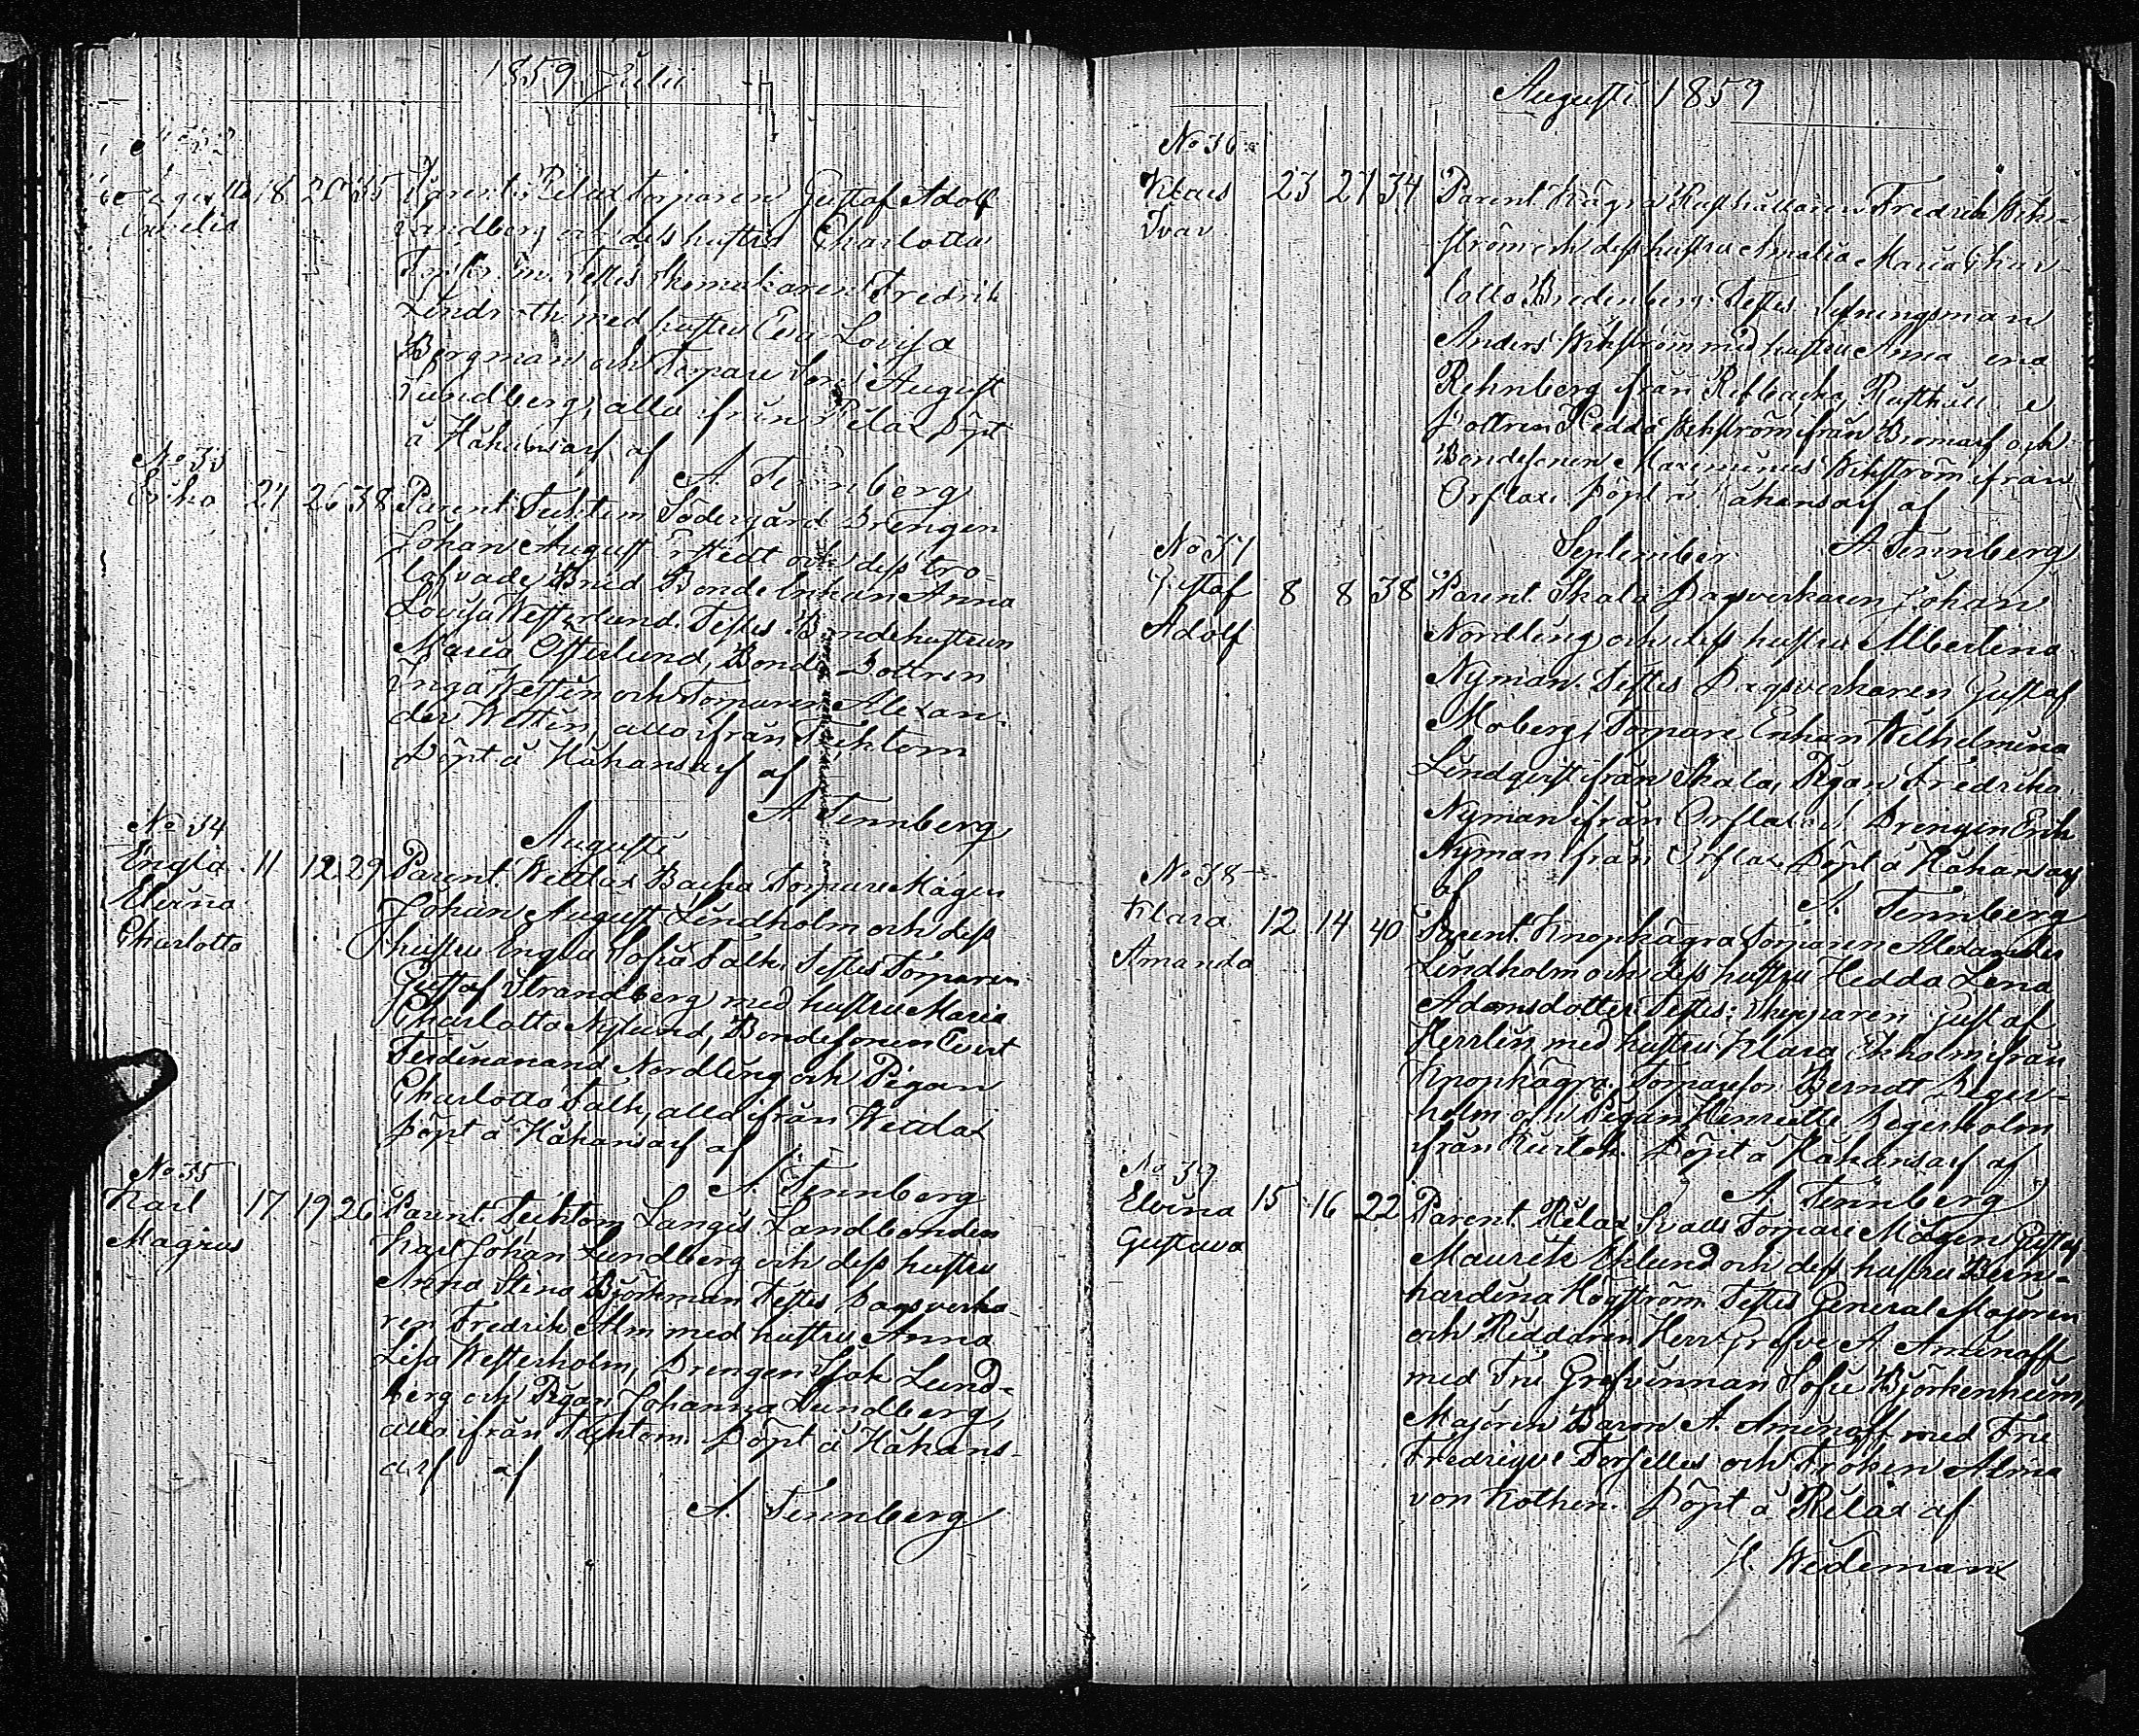 1859 Julii
No 32
18 20 35 Parent. Rilax Torparen Gustaf Adolf
Emelia
Sundberg och dess hustru Charlotta
Testes Skomakaren Fredrik
med hustru Eva Lovisa
Bergman och Torpare Son August
Sundberg, alla från Rilax Döpt
å Håkansarf af
A Tennberg
No 33
Erika 24 26 38 Parent. Techtom Södergård Drengen
Johan August och dess tro-
lofvade Brud Bonde Enkan Anna
Lovisa Westerlund. Testes Bondehustrun
Maria Österlund, Bonde Dottren
Inga Wettin och Torparen Alexan-
der Wettin, alla från Techtom
Döpt å Håkansarf af
A Tennberg
Augusti
No 34
Engla 11 12 29 Parent. Wättlax Backa Torpare Mågen
Elvina
Johan August Lindholm och dess
Charlotta
hustru Engla Sofia Falk. Testes Torparen
Gustaf Strandberg med hustru Maria
Charlotta Nylund, Bondesonen Evert
Ferdinanand Nordling och Pigan
Charlotta Falk, alla från Wättlax
Döpt å Håkansarf af
A. Tennberg
No 35
Karl 17 19 26 Parent. Techtom Långis Landbonden
Magnus
Karl Johan Lundberg och dess hustru
Anna Stina Björkman Testes Dagsverka-
ren Fredrik Alm med hustru Anna
Lisa Westerholm, Drengen Isak Lund-
berg och Pigan Johanna Lundberg,
alla från Techtom. Döpt å Håkans-
arf af
A. Tennberg
Augusti 1859
No 36
Klaes 23 27 34 Parent. Rusthållaren Fredrik Wik-
Ivar
ström och dess hustru Amalia Maria Char-
lotta Bredenberg. Testes
Anders Wikström med hustru Anna
Rehnberg från Refbacka, Rusthåll
Dottren Hedda Wikström från Bromarf och
Bondesonen Maximinus Wikström från
Orslax. Döpt å Håkansarf af
A Tennberg
September
No 37
Gustaf 8 8 38 Parent. Skala Dagsverkaren Johan
Adolf
Nordling och dess hustru Albertina
Nyman. Testes Dagsverkaren Gustaf
Moberg, Torpare Enkan Wilhelmina
Lindqvist från Skala, Pigan Fredrika
Nyman från Orslax och Drengen Erik
Nyman från Orslax Döpt å Håkansarf
af
A. Tennberg
No 38
Klara 12 14 40 Parent. Knopkägra Torparen Alexander
Amanda
Lindholm och dess hustru Hedda Lena
Adamsdotter Testes: Skepparen Gustaf
Herrlin med hustru Klara Ekholm från
Knopkägra. Torpareson Berndt Deger-
holm och Pigan Henriette Degerholm
från Döpt å Håkansarf af
A. Tennberg
No 39
Elvina 15 16 22 Parent. Rilax Torpare Mågen Gustaf
Gustava
Mauritz Eklund och dess hustru Bern-
hardina Högström. Testes General Majoren
och Riddaren Herr Grefve A Aminoff
med Fru Grefvinnan Sofie Björkenheim,
Majoren Baron A. Aminoff med Fru
Fredrique Forselles och Fröken Alma
von Kothen. Döpt å Rilax af
H. Wideman